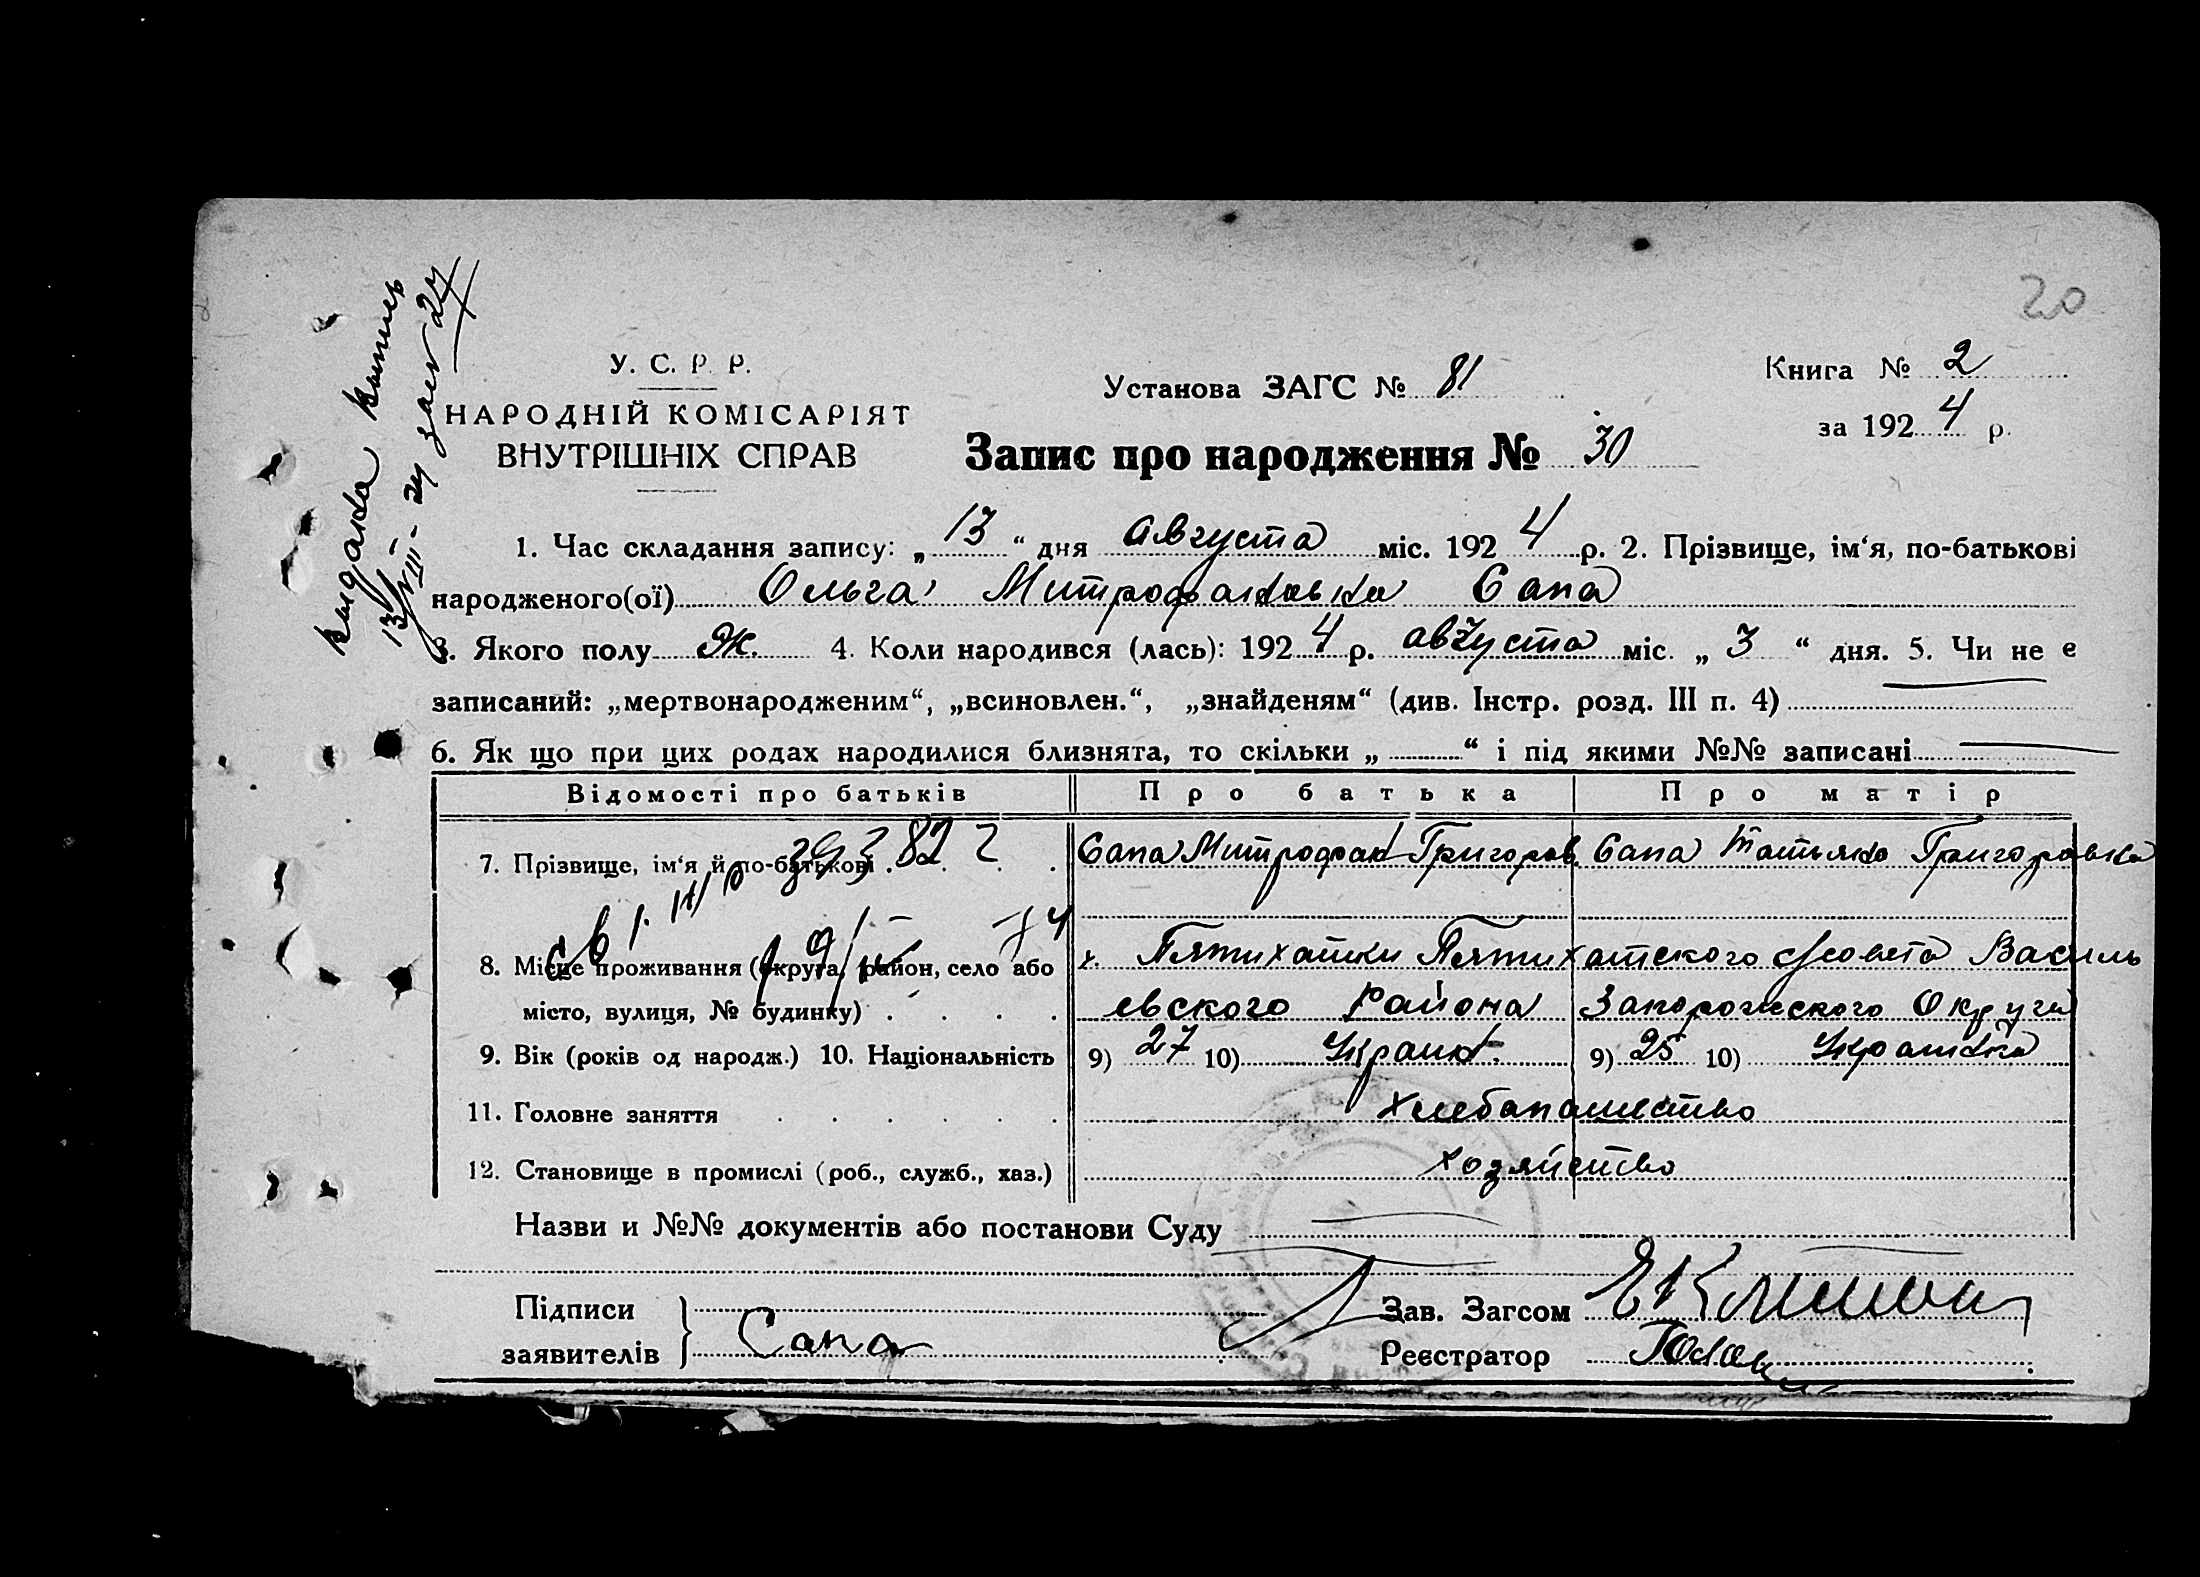 20
У. С. Р. Р.
НАРОДНІЙ КОМІСАРІЯТ
ВНУТРІШНІХ СПРАВ
Установа ЗАГС № 81
Книга № 2
за 1924 р.
Запис про народження № 30
выдана выпись
1. Час складання запису: „ 13 “ дня Августа міс. 1924 р. 2. Прізвище, ім‘я, по-батькові
народженого(ої) Ольга Митрофановна Сапа
3. Якого полу Ж. 4. Коли народився (лась): 1924 р. августа міс. „ 3 “ дня. 5. Чи не є
записаний: „мертвонародженим“, „всиновлен.“, „знайденям“ (див. Інстр. розд. III п. 4)
6. Як що при цих родах народилися близнята, то скільки „ “ і під якими №№ записані
Відомості про батьків Про батька Про матір
7. Прізвище, ім‘я й по-батькові Сапа Митрофан Григоров. Сапа Татьяна Григоровна
8. Місце проживання (округа, район, село або х. Пятихатки Пятихатского с/совета Василь
місто, вулиця, № будинку) евского Района Запорожского Округи
9. Вік (років од народж.) 10. Національність 9) 27 10) Украин. 9) 25 10) Украинка
11. Головне заняття хлебапашество
12. Становище в промислі (роб., служб., хаз.) хозяйство
Назви и №№ документів або постанови Суду
Підписи
заявителів Сапа
Зав. Загсом
Реєстратор